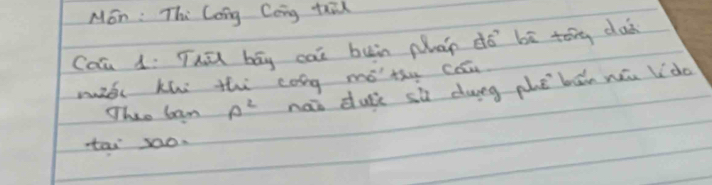 Môn: Thi Công Công trình
Câu 1: Trình bày các biện pháp đổ bê tông dưới
nước khi thi công mố trụ cầu
Theo bạn p² nào được sử dụng phổ biến nêu lí do
tại sao.